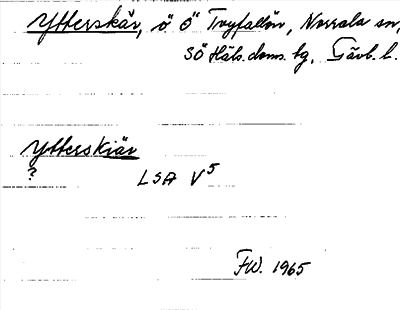 Ytterskär, ö Ö Trayfallön, Norrala sn,
SÖ Häls. doms. tg, Gävl. l.
Ytterskiär
?
LSA V5
FW. 1965